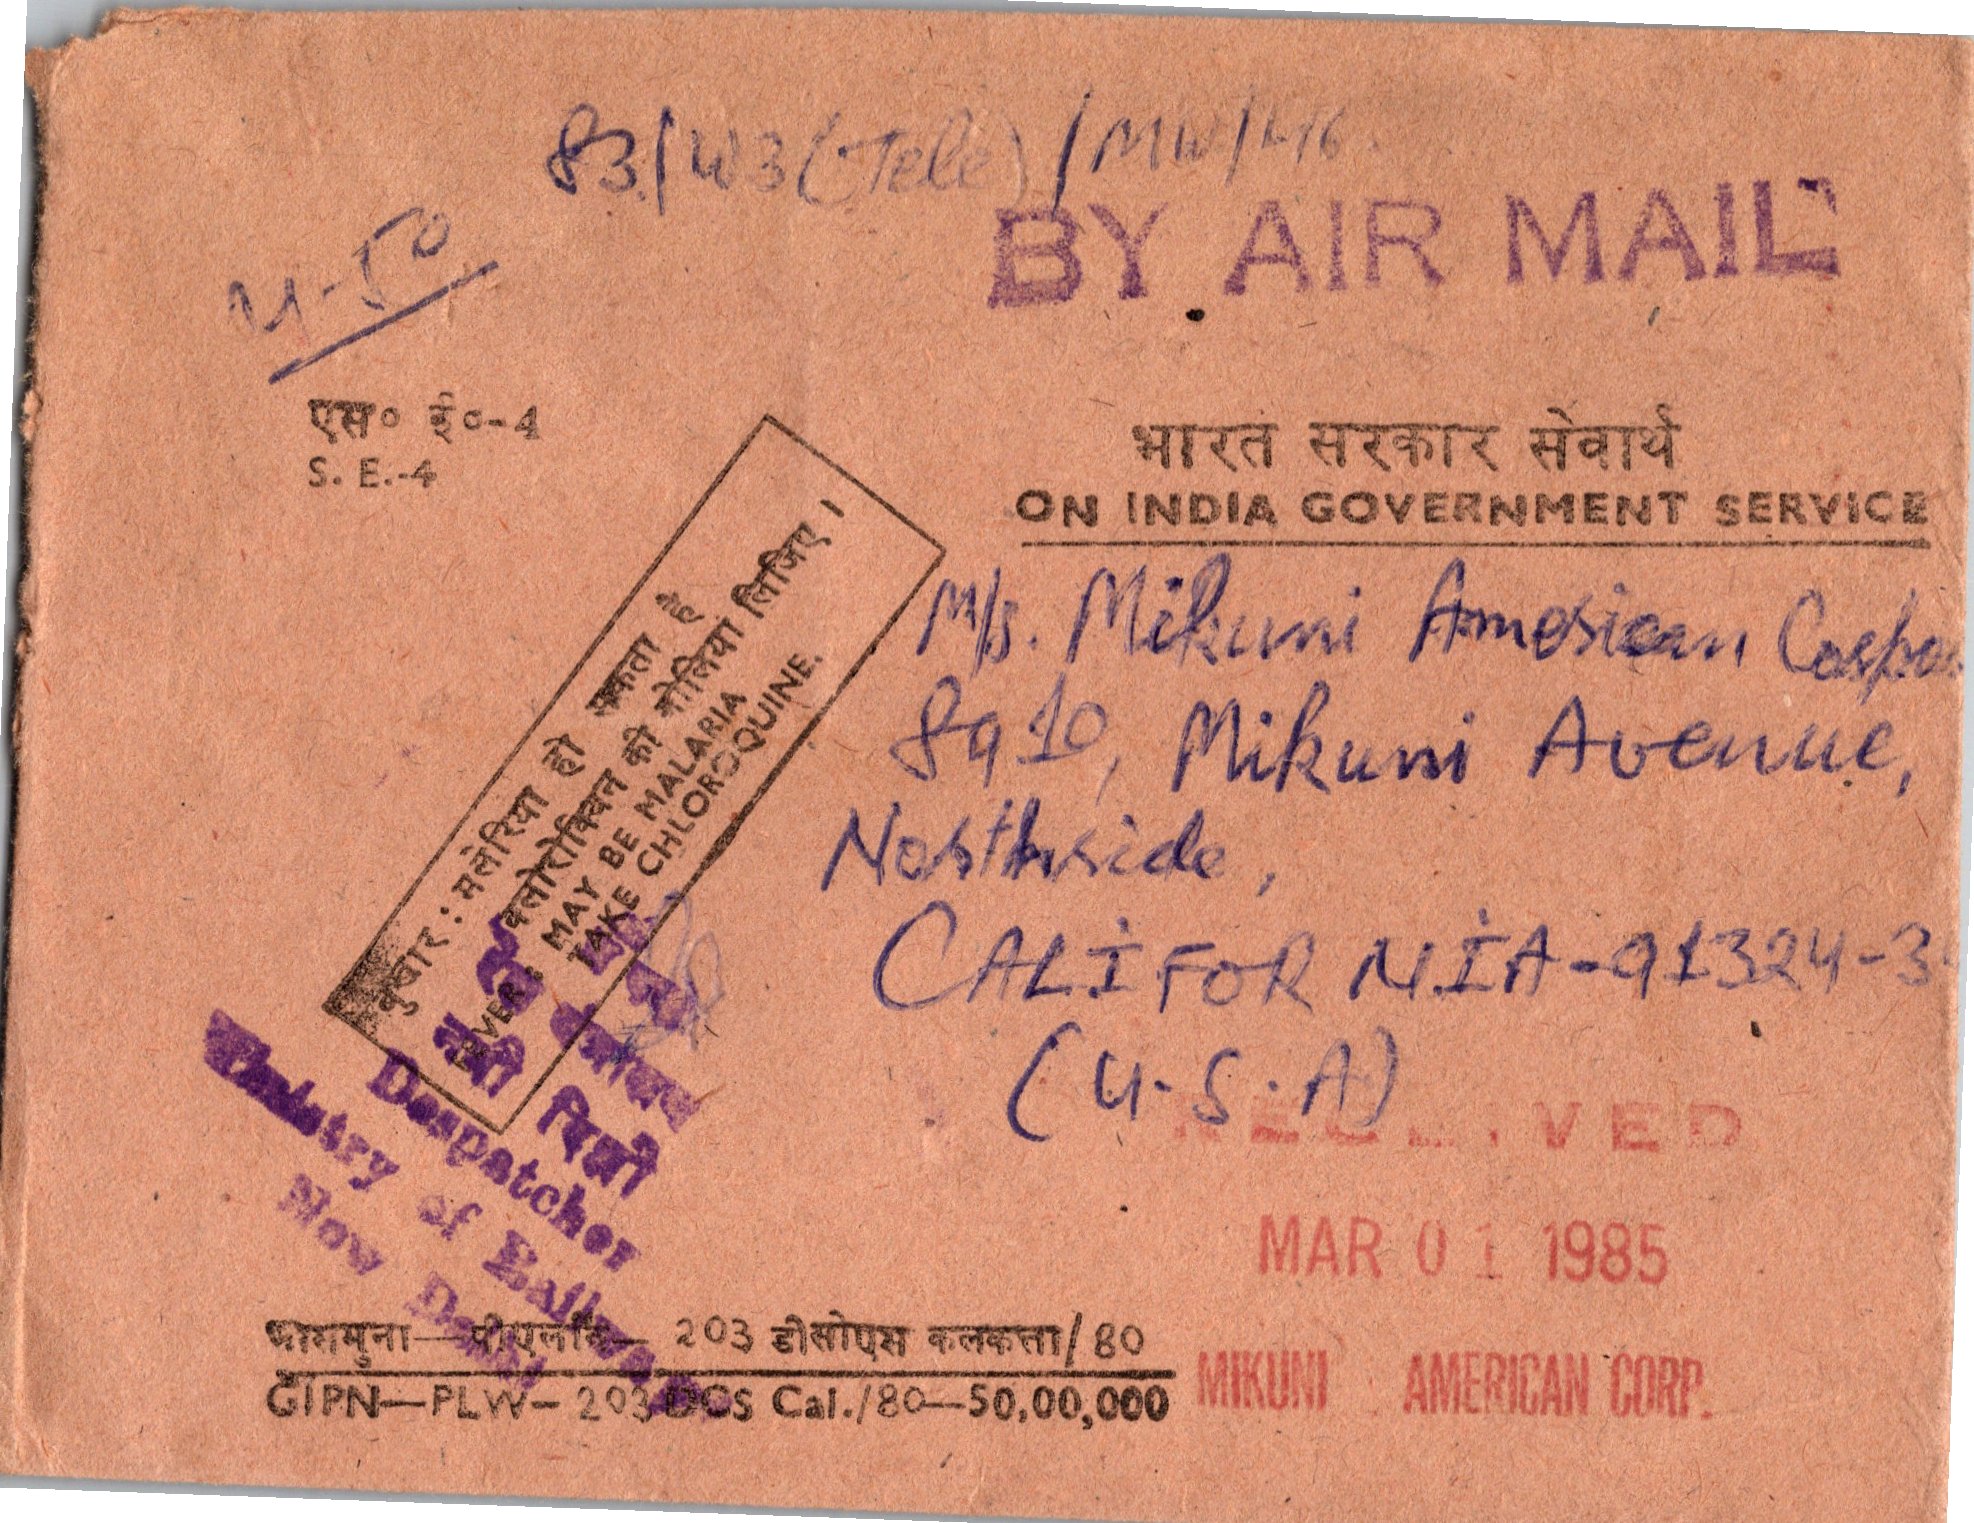 83/W3(Tele)/MW/
BY AIR MAIL
एस० ई०-4
S. E.-4
भारत सरकार सेवार्थ
ON INDIA GOVERNMENT SERVICE
M/s. Mikuni American Corpo
8910, Mikuni Avenue,
Northside,
CALIFORNIA-91324-3
(U.S.A)
बुखार : मलेरिया हो सकता है
क्लोरोक्विन की गोलियां लिजिए ।
FEVER : MAY BE MALARIA
TAKE CHLOROQUINE.
नयी दिल्ली
Despatcher
of Railways
New Delhi
RECEIVED
MAR 01 1985
MIKUNI AMERICAN CORP.
203 डीसीएस कलकत्ता/80
GIPN—PLW—203 DOS Cal./80—50,00,000